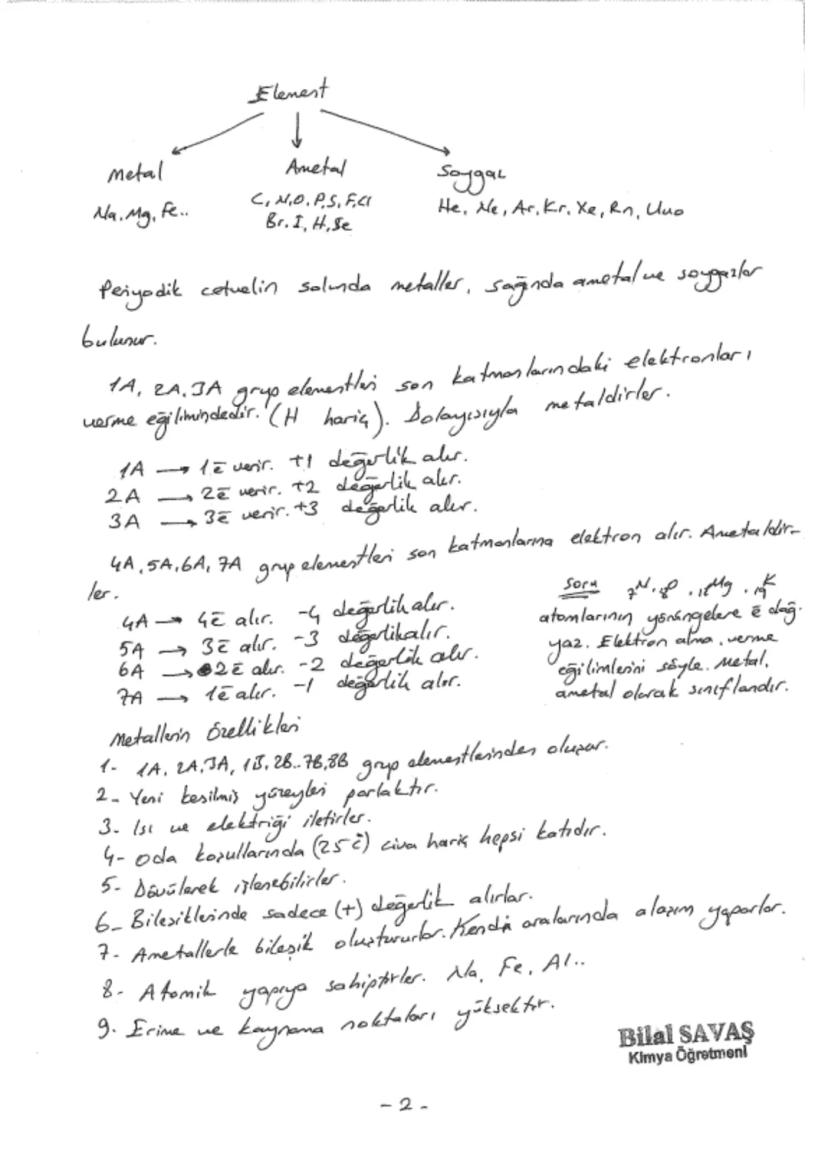 Element
Metal
Ametal
Soygaz
Na, Mg, Fe..
C, N, O, P, S, F, Cl
Br, I, H, Se
He, Ne, Ar, Kr, Xe, Rn, Uuo
Periyodik cetvelin solunda metaller, sağında ametal ve soygazlar
bulunur.
1A, 2A, 3A grup elementleri son katmanlarındaki elektronları
verme eğilimindedir. (H hariç). Dolayısıyla metaldirler.
1A → 1ē verir. +1 değerlik alır.
2A → 2ē verir. +2 değerlik alır.
3A → 3ē verir. +3 değerlik alır.
4A, 5A, 6A, 7A grup elementleri son katmanlarına elektron alır. Ametaldir-
ler.
4A → 4ē alır. -4 değerlik alır.
5A → 3ē alır. -3 değerlik alır.
6A → 2ē alır. -2 değerlik alır.
7A → 1ē alır. -1 değerlik alır.
Soru ₇N, ₈O, ₁₂Mg, ₁₉K
atomlarının yörüngelere ē dağ.
yaz. Elektron alma, verme
eğilimlerini söyle. Metal,
ametal olarak sınıflandır.
Metallerin Özellikleri
1- 1A, 2A, 3A, 1B, 2B..7B, 8B grup elementlerinden oluşur.
2- Yeni kesilmiş yüzeyleri parlaktır.
3- Isı ve elektriği iletirler.
4- Oda koşullarında (25 °C) civa hariç hepsi katıdır.
5- Dövülerek işlenebilirler.
6- Bileşiklerinde sadece (+) değerlik alırlar.
7- Ametallerle bileşik oluştururlar. Kendi aralarında alaşım yaparlar.
8- Atomik yapıya sahiptirler. Na, Fe, Al..
9- Erime ve kaynama noktaları yüksektir.
Bilal SAVAŞ
Kimya Öğretmeni
- 2 -